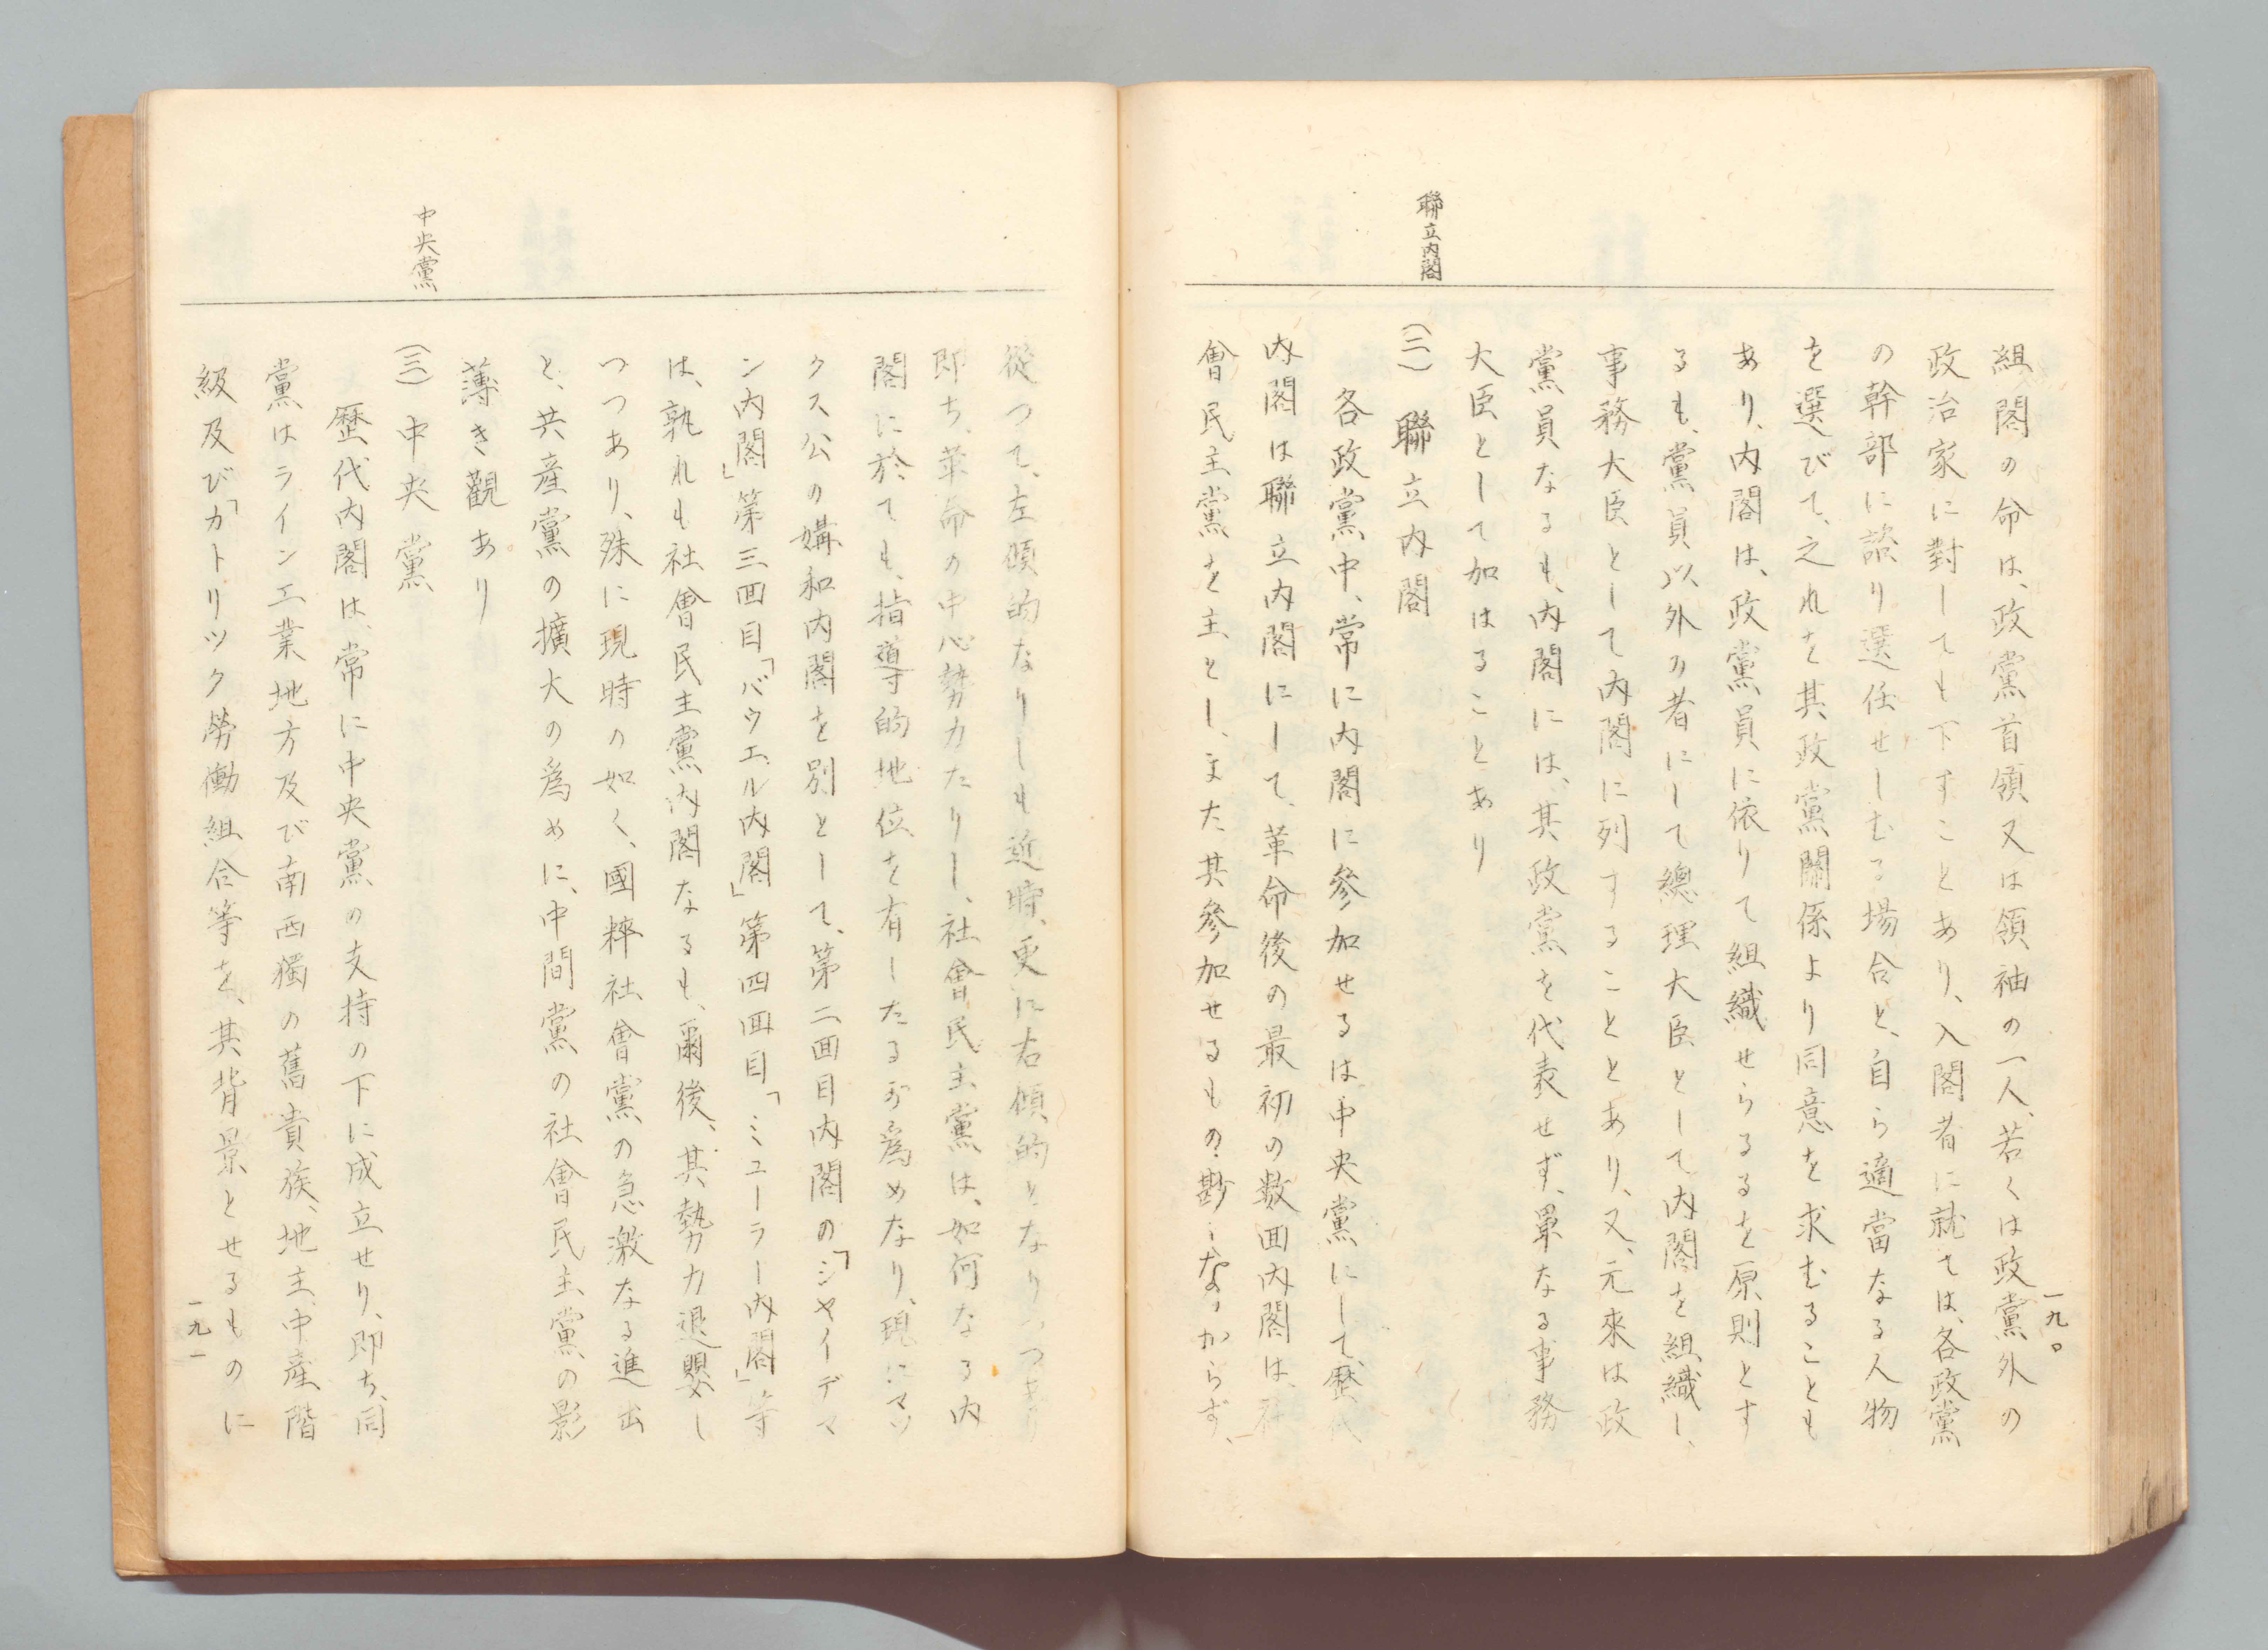 一九〇
聯立内閣
組閣の命は、政黨首領又は領袖の一人、若くは政黨外の
政治家に對しても下すことあり、入閣者に就ては、各政黨
の幹部に諮り選任せしむる場合と、自ら適當なる人物
を選びて、之れを其政黨關係より同意を求むることも
あり、内閣は、政黨員に依りて組織せらるるを原則とす
るも、黨員以外の者にして總理大臣として内閣を組織し、
事務大臣として内閣に列することとあり、又、元來は政
黨員なるも、内閣には、其政黨を代表せず、單なる事務
大臣として加はることあり
(二) 聯立内閣
各政黨中、常に内閣に參加せるは中央黨にして、歷代
内閣は聯立内閣にして、革命後の最初の数囬内閣は、社
會民主黨を主とし、また其參加せるもの尠しなからず、
中央黨
從つて、左傾的なりしも近時、更に右傾的となりつつあり
即ち、革命の中心勢力たりし、社會民主黨は、如何なる内
閣に於ても、指導的地位を有したるが爲めなり、現にマッ
クス公の媾和内閣を別として、第二囬目内閣の「シヤイデマ
ン内閣」第三囬目「バウエル内閣」第四囬目「ミユーラー内閣」等
は、孰れも社會民主黨内閣なるも、爾後、其勢力退嬰し
つつあり、殊に現時の如く、國粹社會黨の急激なる進出
と、共産黨の擴大の爲めに、中間黨の社會民主黨の影
薄き觀あり
(三) 中央黨
歷代内閣は、常に中央黨の支持の下に成立せり、即ち、同
黨はライン工業地方及び南西獨の舊貴族、地主、中産階
級及び「カトリツク勞働組合等を、其背景とせるものに
一九一